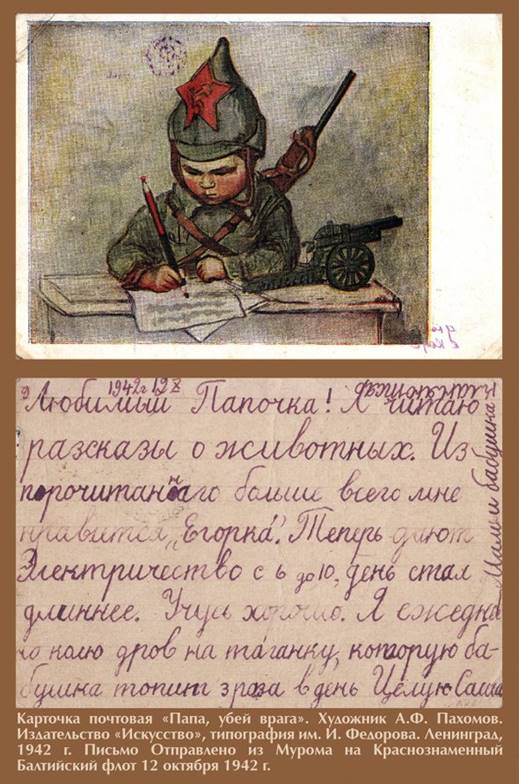 1942г 12 X
Любимый Папочка! Я читаю
рассказы о животных. Из
прочитаннаго больше всего мне
нравится „Егорка“. Теперь дают
Электричество с 6 до 10, день стал
длиннее. Учусь хорошо. Я ежедне
но колю дров на таганку, которую ба-
бушка топит 3 раза в день Целую Саша
Мама и бабушка
Карточка почтовая «Папа, убей врага». Художник А.Ф. Пахомов.
Издательство «Искусство», типография им. И. Федорова. Ленинград,
1942 г. Письмо Отправлено из Мурома на Краснознаменный
Балтийский флот 12 октября 1942 г.